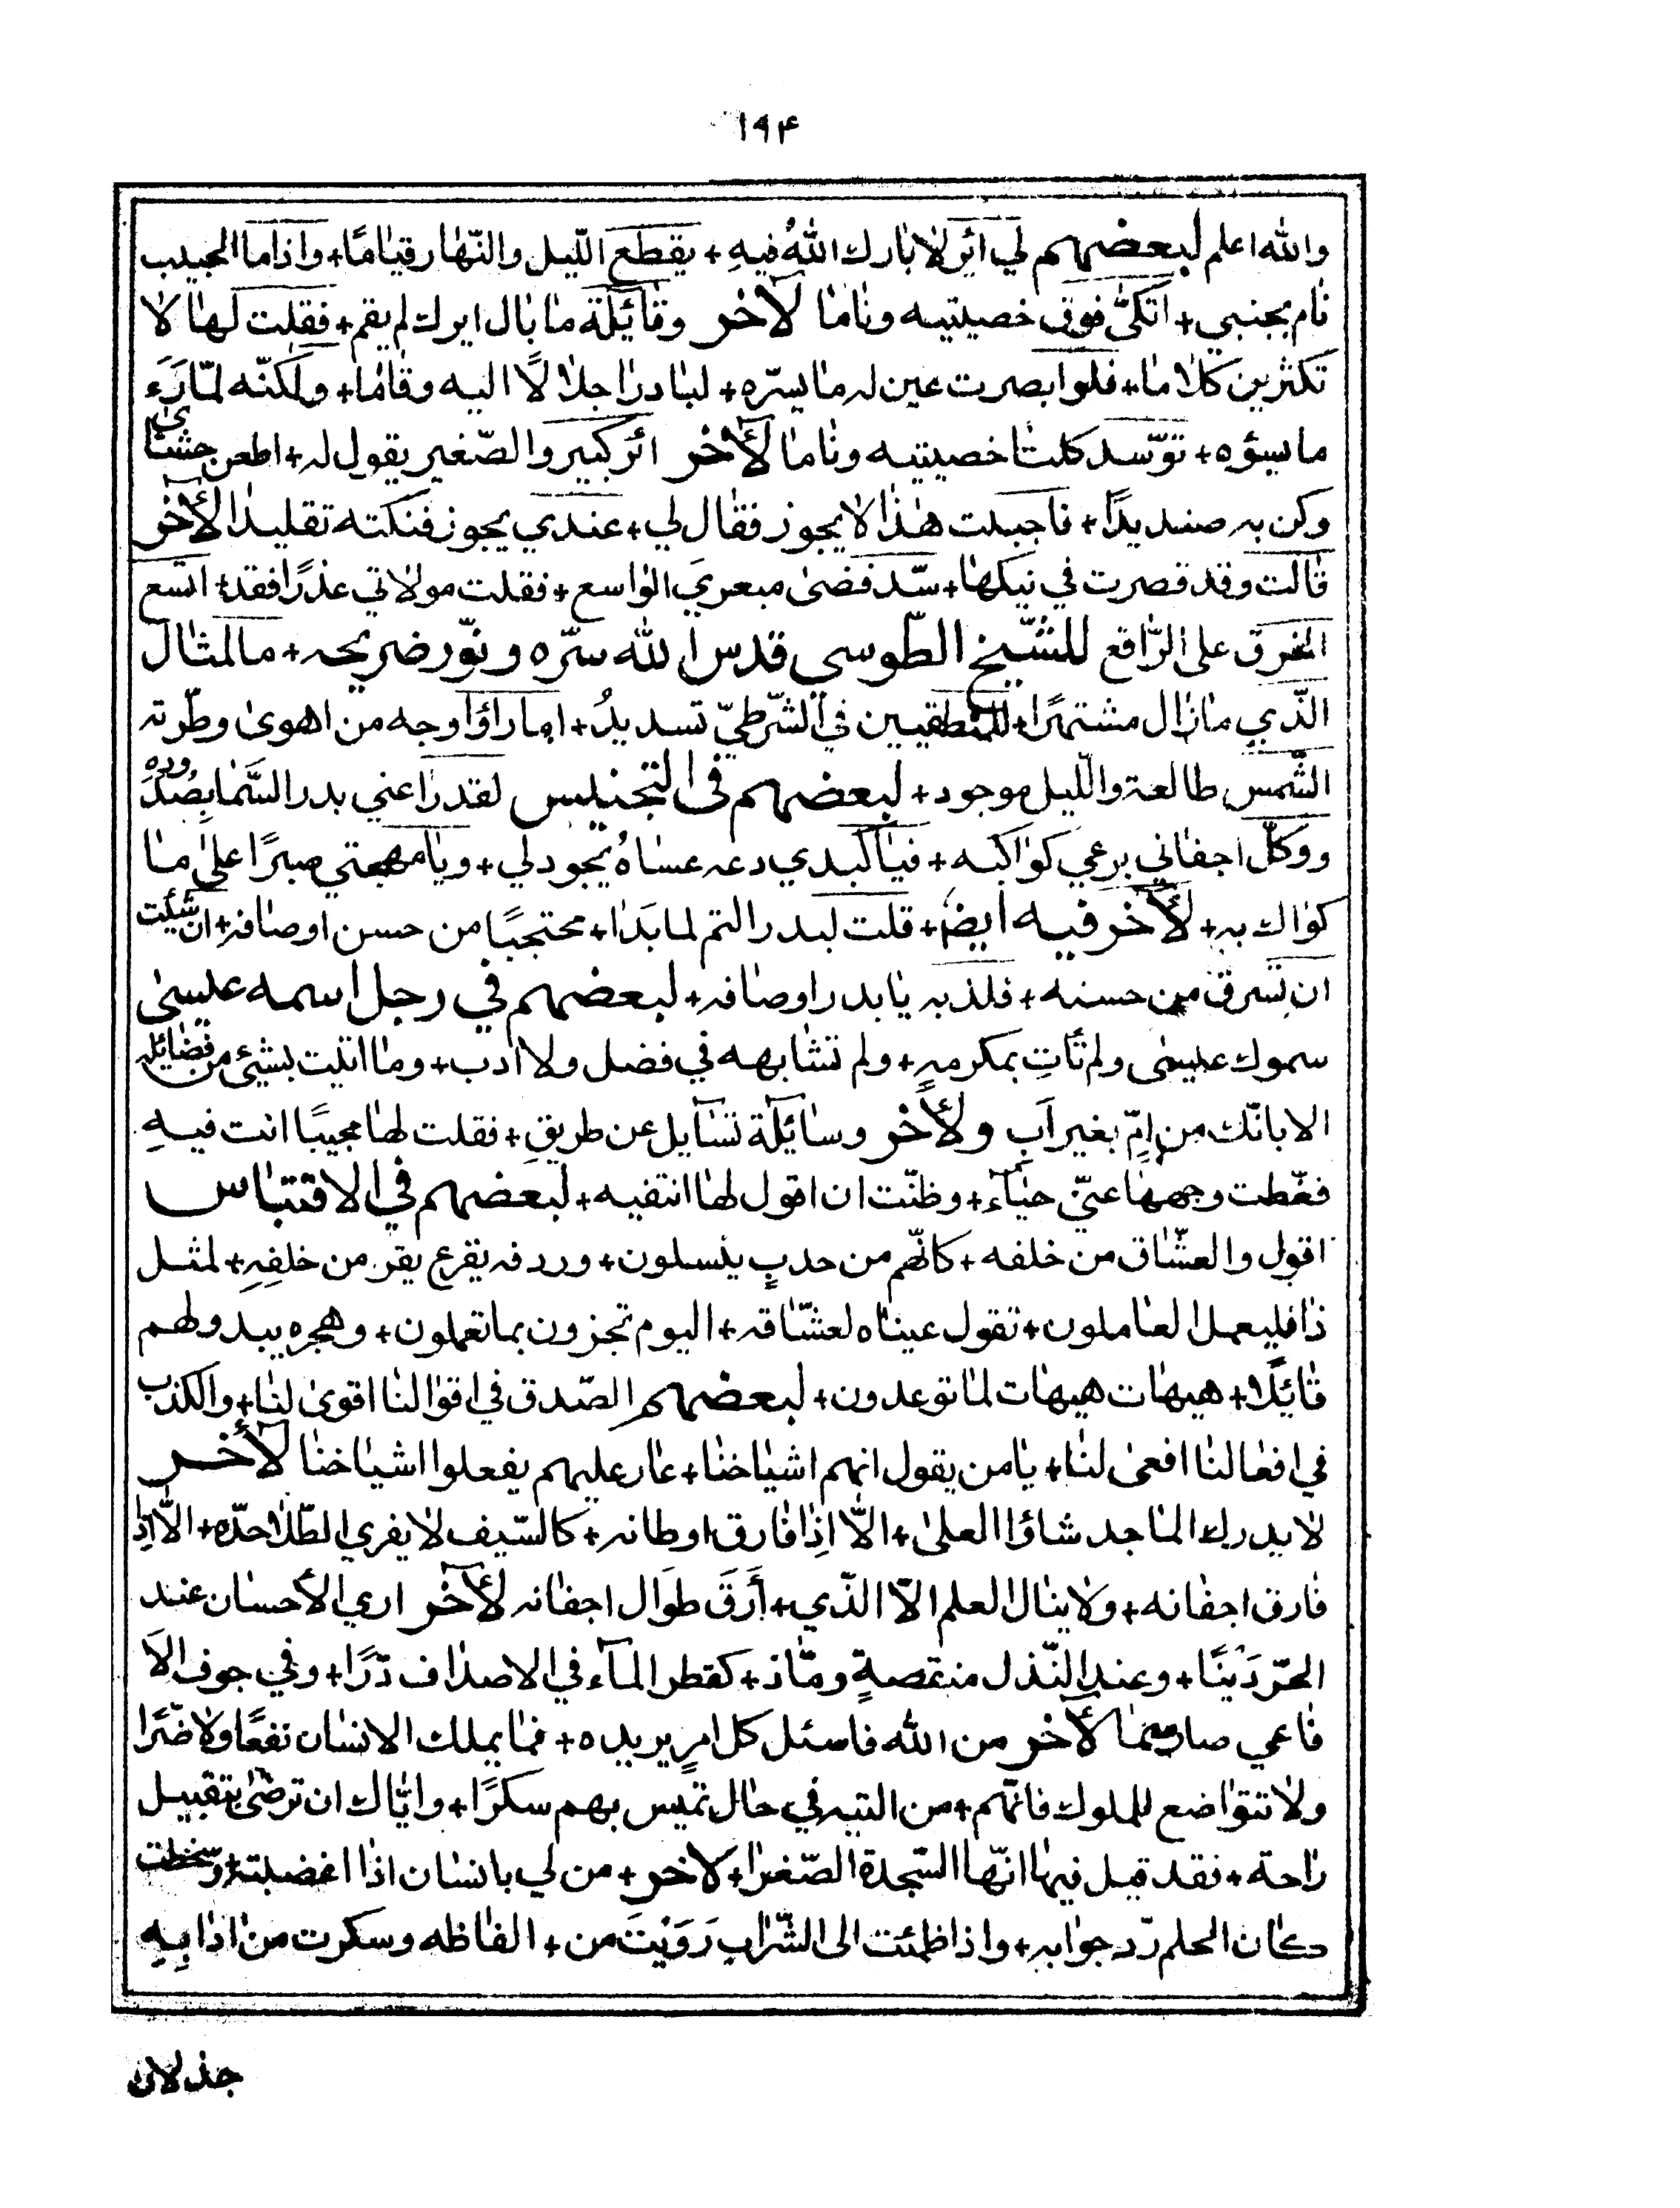 ۱۹۴
والله اعلم لبعضهم لي ائر لا بارك الله فيهِ + يقطع اللّيل والنّهار قيامًا + واذا ما الحبيب
نام بجنبي + اتكىّ فوق خصيتيه وناما لآخر وقائلة ما بال ايرك لم يقم + فقلت لها لا
تكثرين كلاما + فلو ابصرت عين له ما يسرّه + لبادر اجلالًا اليه وقاما + ولكنّه لمّا رَءَ
ما يسؤه + توّسد كلتا خصيتيه وناما لآخر ائر كبير والصّغير يقول له + اطعن حشائي
وكن به صنديدًا + فاجبت هذا لا يجوز فقال لي + عندي يجوز فنكته تقليدا لآخر
قالت وقد قصرت في نيكها + سّد فضى مبعريَ الواسع + فقلت مولاتي عذرًا فقد + اتسع
الخرق على الرّاقع للشّيخ الطّوسي قدس الله سرّه ونوّر ضريحه + ما المثال
الّذي ما زال مشتهرًا + للمنطقيين في الشّرطيّ تسديدُ + اما راؤا وجه من اهوى وطرّته
الشّمس طالعة واللّيل موجود + لبعضهم في التجنيس لقد راعني بدر السَّما بِصُدُوده
ووكّل اجفاني برعي كواكبه + فيا كبدي دعه عساهُ يجود لي + ويا مهجتي صبرًا على ما
كواك به + لآخر فيه ايضًا + قلت لبدر التم لما بَدَا + محتجبًا من حسن اوصافه + ان شئت
ان تسرق من حسنه + فلذ به يا بدر اوصافه + لبعضهم في رجل اسمه عيسى
سموك عيسى ولم تأتِ بمكرمهٍ + ولم تشابهه في فضل ولا ادب + وما اتيت بشيئ من فضائله
الا بانّك من اِمّ بغير اَبٍ ولأخر وسائلة تسايل عن طريقِ + فقلت لها مجيبا انت فيهِ
فغّطت وجهها عنيّ حياء + وظنّت ان اقول لها انتفيه + لبعضهم في الاقتباس
اقول والعشّاق من خلفه + كانّهم من حدبٍ ينسلون + وردفه يقرع يقر من خلفِهِ + لمثل
ذا فليعمل العاملون + تقول عيناه لعشّاقه + اليوم تجزون بما تعملون + وهجره يبدو لهم
قائلًا + هيهات هيهات لما توعدون + لبعضهم الصّدق في اقوالنا اقوى لنا + والكذب
في افعالنا افعى لنا + يا من يقول انهم اشياخنا + عار عليهم يفعلوا اشياخنا لآخر
لا يدرك الماجد شاؤا العلى + الّا اِذا فارق اوطانه + كالسّيف لا يفري الطّلا حدّه + الّا اِذا
فارق اجفانه + ولا ينال العلم الاّ الذّي + أَرَقَ طوَال اجفانه لآخر اري الأحسان عند
الحرّ دَيْنًا + وعند النّذل منقصةٍ ومّاذ + كقطر المآء في الاصداف دّرًا + وفي جوف الاَ
فاعي صار سما لأخر من الله فاسئل كل امرٍ يريده + فما يملك الانسان نفعًا ولا ضّرًا
ولا تتواضع للملوك فانّهم + من التيه في حال تميس بهم سكرًا + وايّاك ان ترضى بتقبيل
راحة + فقد قيل فيها انّها السّجدة الصّغرا + لاخر + من لي بانسان اذا اغضبته + وسخطت
كان الحلم رّد جوابه + واذا ظمئت الى الشّراب رَوَيْتَ من + الفاظه وسكرت من ادابِهِ
جذلان